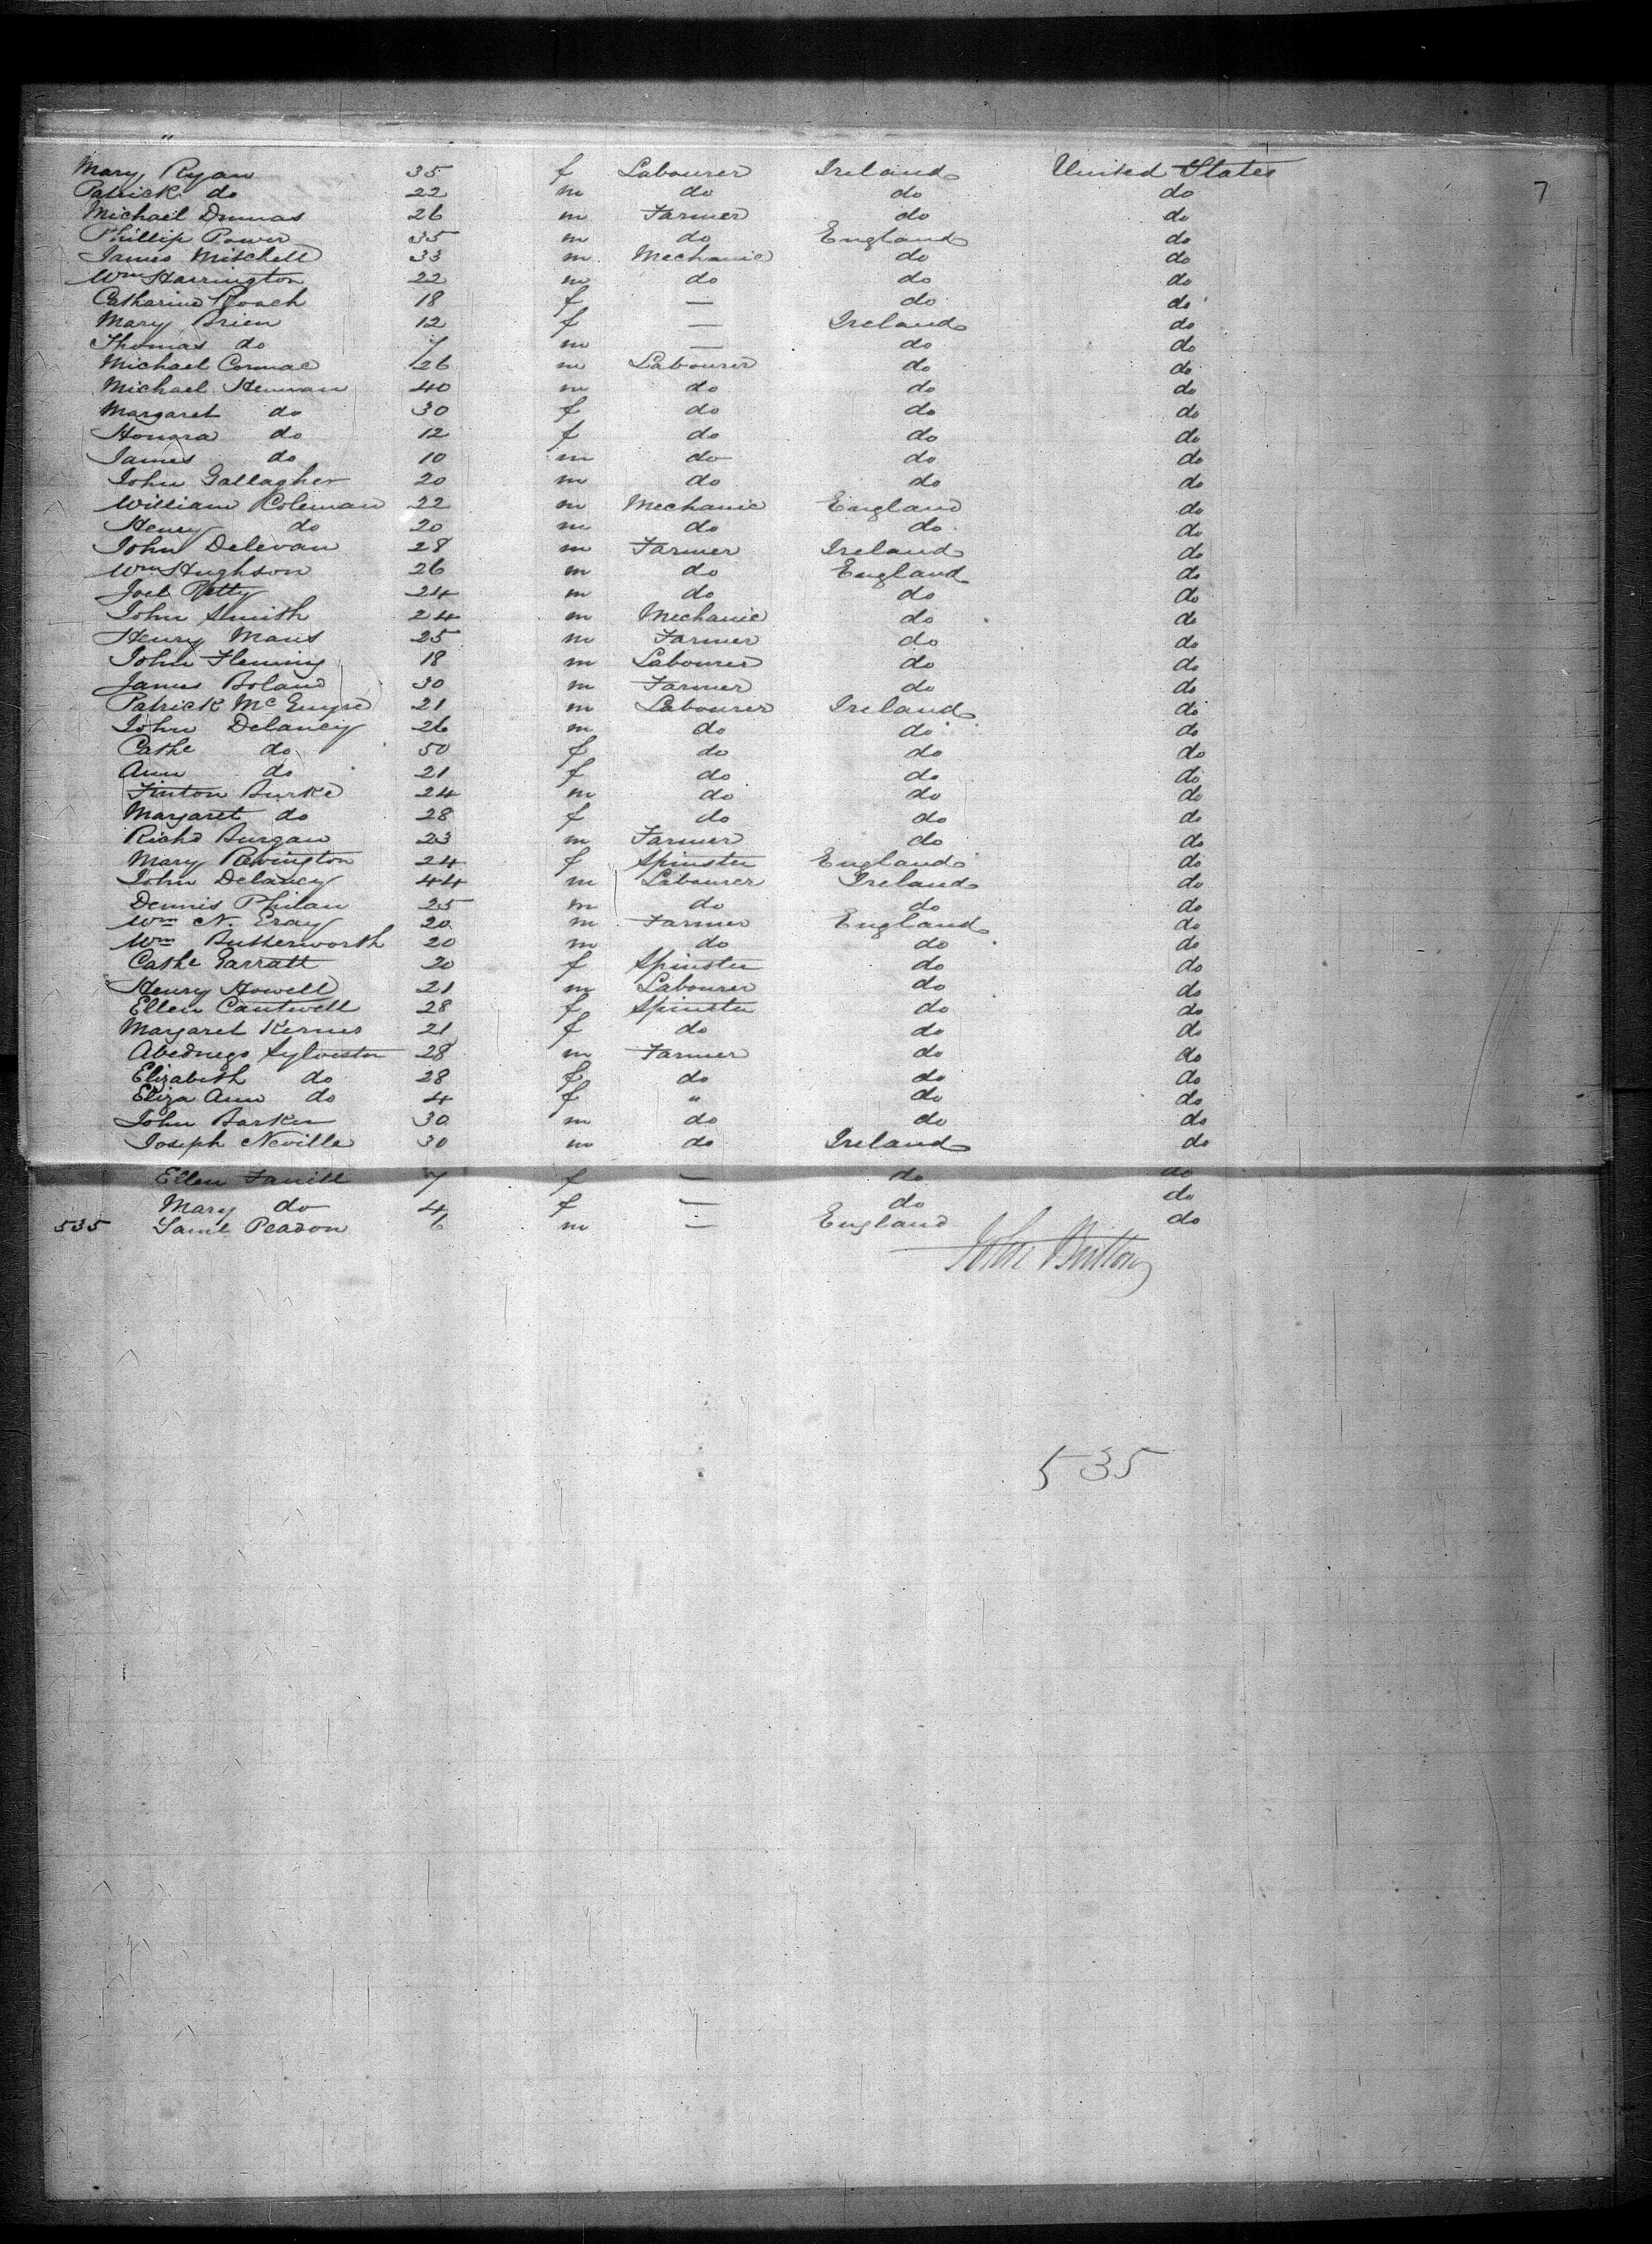 "
Mary Ryan 35 f Labourer Ireland United States
7
Patrick do 22 m do do do
Michael Dunnas 26 m Farmer do do
Phillip Power 35 m do England do
James Mitchell 33 m Mechanic do do
Wm Harrington 22 m do do do
Catharine Roach 18 f — do do
Mary Brien 12 f — Ireland do
Thomas do 7 m — do do
Michael Cormac 26 m Labourer do do
Michael Heenan 40 m do do do
Margaret do 30 f do do do
Honora do 12 f do do do
James do 10 m do do do
John Gallagher 20 m do do do
William Coleman 22 m Mechanic England do
Henry do 20 m do do do
John Delevan 28 m Farmer Ireland do
Wm Hughson 26 m do England do
Joel Petty 24 m do do do
John Smith 24 m Mechanic do do
Henry Maus 25 m Farmer do do
John Fleming 18 m Labourer do do
James Boland 30 m Farmer do do
Patrick Mc 21 m Labourer Ireland do
John Delancy 26 m do do do
Cathe do 50 f do do do
Ann do 21 f do do do
Finton Burke 24 m do do do
Margaret do 28 f do do do
Richd Burgan 23 m Farmer do do
Mary Revington 24 f Spinster England do
John Delancy 44 m Labourer Ireland do
Dennis Philan 25 m do do do
Wm N. Eray 20 m Farmer England do
Wm Butherworth 20 m do do do
Cathe Garratt 20 f Spinster do do
Henry Howell 21 m Labourer do do
Ellen Cantwell 28 f Spinster do do
Margaret Kernes 21 f do do do
Abednego Sylvester 28 m Farmer do do
Elizabeth do 28 f do do do
Eliza Ann do 4 f " do do
John Barker 30 m do do do
Joseph Neville 30 m do Ireland do
Ellen Farrill 7 f — do do
Mary do 4 f — do do
535 Saml Peadon 6 m — England do
John Britton
535